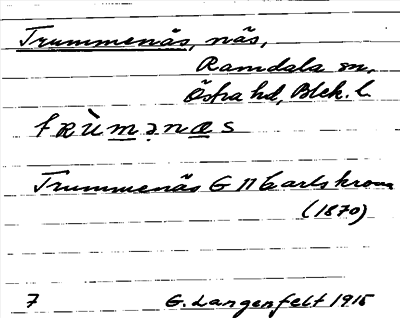 Trummenäs, näs,
Ramdala sn,
Östra hd, Blek. l.
tRùmənæs
Trummenäs G II Carlskrona
(1870)
7 G. Langenfelt 1915